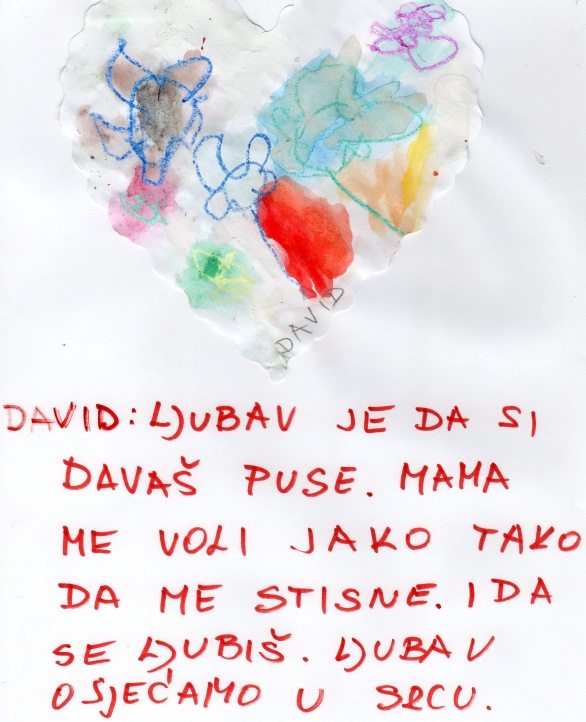 DAVID
DAVID: LJUBAV JE DA SI
DAVAŠ PUSE. MAMA
ME VOLI JAKO TAKO
DA ME STISNE. I DA
SE LJUBIŠ. LJUBAV
OSJEĆAMO U SRCU.